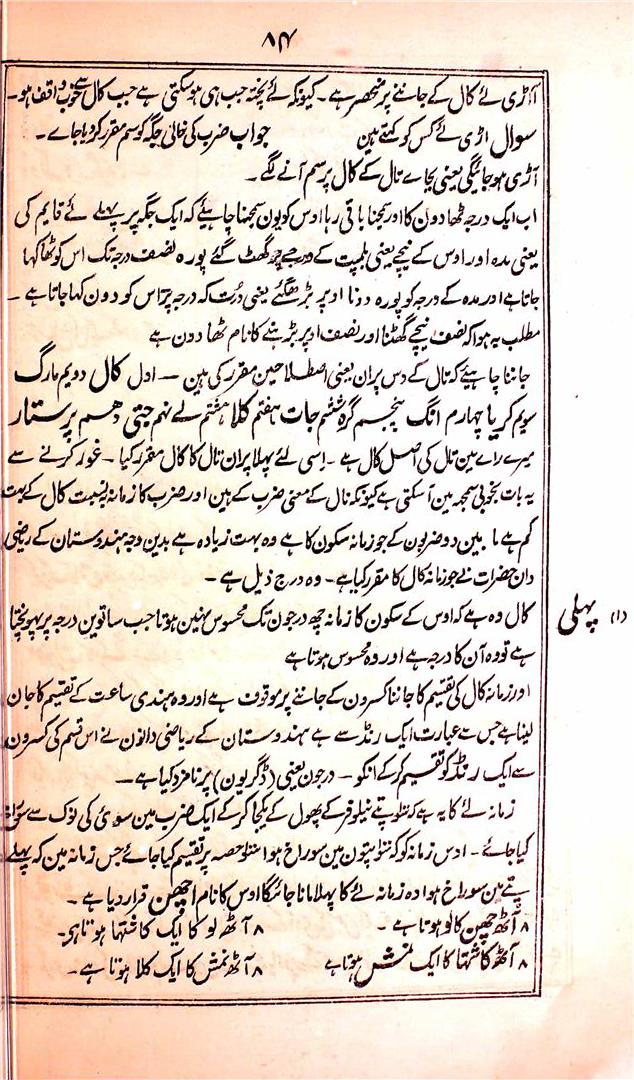 ۸۴
آڑی لے کال کے جاننے پر منحصر ہے ۔ کیونکہ لے پختہ جب ہی ہو سکتی ہے جب کال سے خوب واقف ہو ۔
سوال اڑی لے کس کو کہتے ہین جواب ضرب کی خالی جگہ کو سم مقرر کر دیا جاے ۔
آڑی ہو جائیگی یعنی بجاے تال کے کال پر سم آنے لگے ۔
اب ایک درجہ ٹھا دون کا اور سمجھنا باقی رہا اوس کو یون سمجھنا چاہیئے کہ ایک جگہ پر پہلے لے قایم کی
یعنی مدہ اور اوس کے نیچے یعنی بلمپت کے درجے جو گھٹ گئے پورہ نصف درجہ تک اس کو ٹھا کہا
جاتا ہے اور مدہ کے درجہ کو پورہ دونا اوپر بڑھگئے یعنی درت کہ درجہ پر تو اس کو دون کہا جاتا ہے ۔
مطلب یہ ہوا کہ نصف نیچے گھٹنا اور نصف اوپر بڑہنے کا نام ٹھا دون ہے
جاننا چاہیے کہ تال کے دس پران یعنی اصطلاحین مقرر کی ہین ۔ اول کال دویم مارگ
سویم کریا چہارم انگ پنجم گرہ ششم جات ہفتم کلا ہشتم لے نہم جتی دھم پرستار
میرے راے مین تال کی اصل کال ہے ۔ اِسی لئے پہلا پران تال کا کال مقرر کیا ۔ غور کرنے سے
یہ بات بخوبی سمجہ مین آسکتی ہے کیونکہ تال کے معنی ضرب کے ہین اور ضرب کا زمانہ بہ نسبت کال کے بہت
کم ہے مابین دو ضربون کے جو زمانہ سکون کا ہے وہ بہت زیادہ ہے بدین وجہ ہندوستان کے ریاضی
دان حضرات نے جو زمانہ کال کا مقرر کیا ہے ۔ وہ درج ذیل ہے ۔
(۱) پہلی
کال وہ ہے کہ اوس کے سکون کا زمانہ چھ درجون تک محسوس نہین ہوتا جب ساتوین درجہ پر پہونچتا
ہے تو وہ آن کا درجہ ہے اور وہ محسوس ہوتا ہے
اور زمانہ کال کی تقسیم کا جاننا کسرون کے جاننے پر موقوف ہے اور وہ ہندی ساعت کے تقسیم کا جان
لینا ہے جس سے عبارت ایک رنڈ سے ہے ہندوستان کے ریاضی دانون نے اس قسم کی کسرون
سے ایک رنڈ کو تقسیم کر کے انکو ۔ درجون یعنی (ڈگریون) پر نامزد کیا ہے ۔
زمانہ لے کا یہ ہے کہ سَو پتے نیلوفر کے پھول کے یکجا کر کے ایک ضرب مین سوئی کی نوک سے سوراخ
کیا جائے ۔ اوس زمانہ کو کہ سو پتون مین سوراخ ہوا سو حصہ پر تقسیم کیا جائے جس زمانہ مین کہ پہلے
پتے مین سوراخ ہوا وہ زمانہ لے کا پہلا مانا جائیگا اوس کا نام اچھن قرار دیا ہے ۔
۸ آٹھ چھن کا لو ہوتا ہے ۔ ۸ آٹھ لو کا ایک کاشتہا ہوتا ہی ۔
۸ آٹھ کاشتہا کا ایک نمش ہوتا ہے ۸ آٹھ نمش کا ایک کلا ہوتا ہے ۔